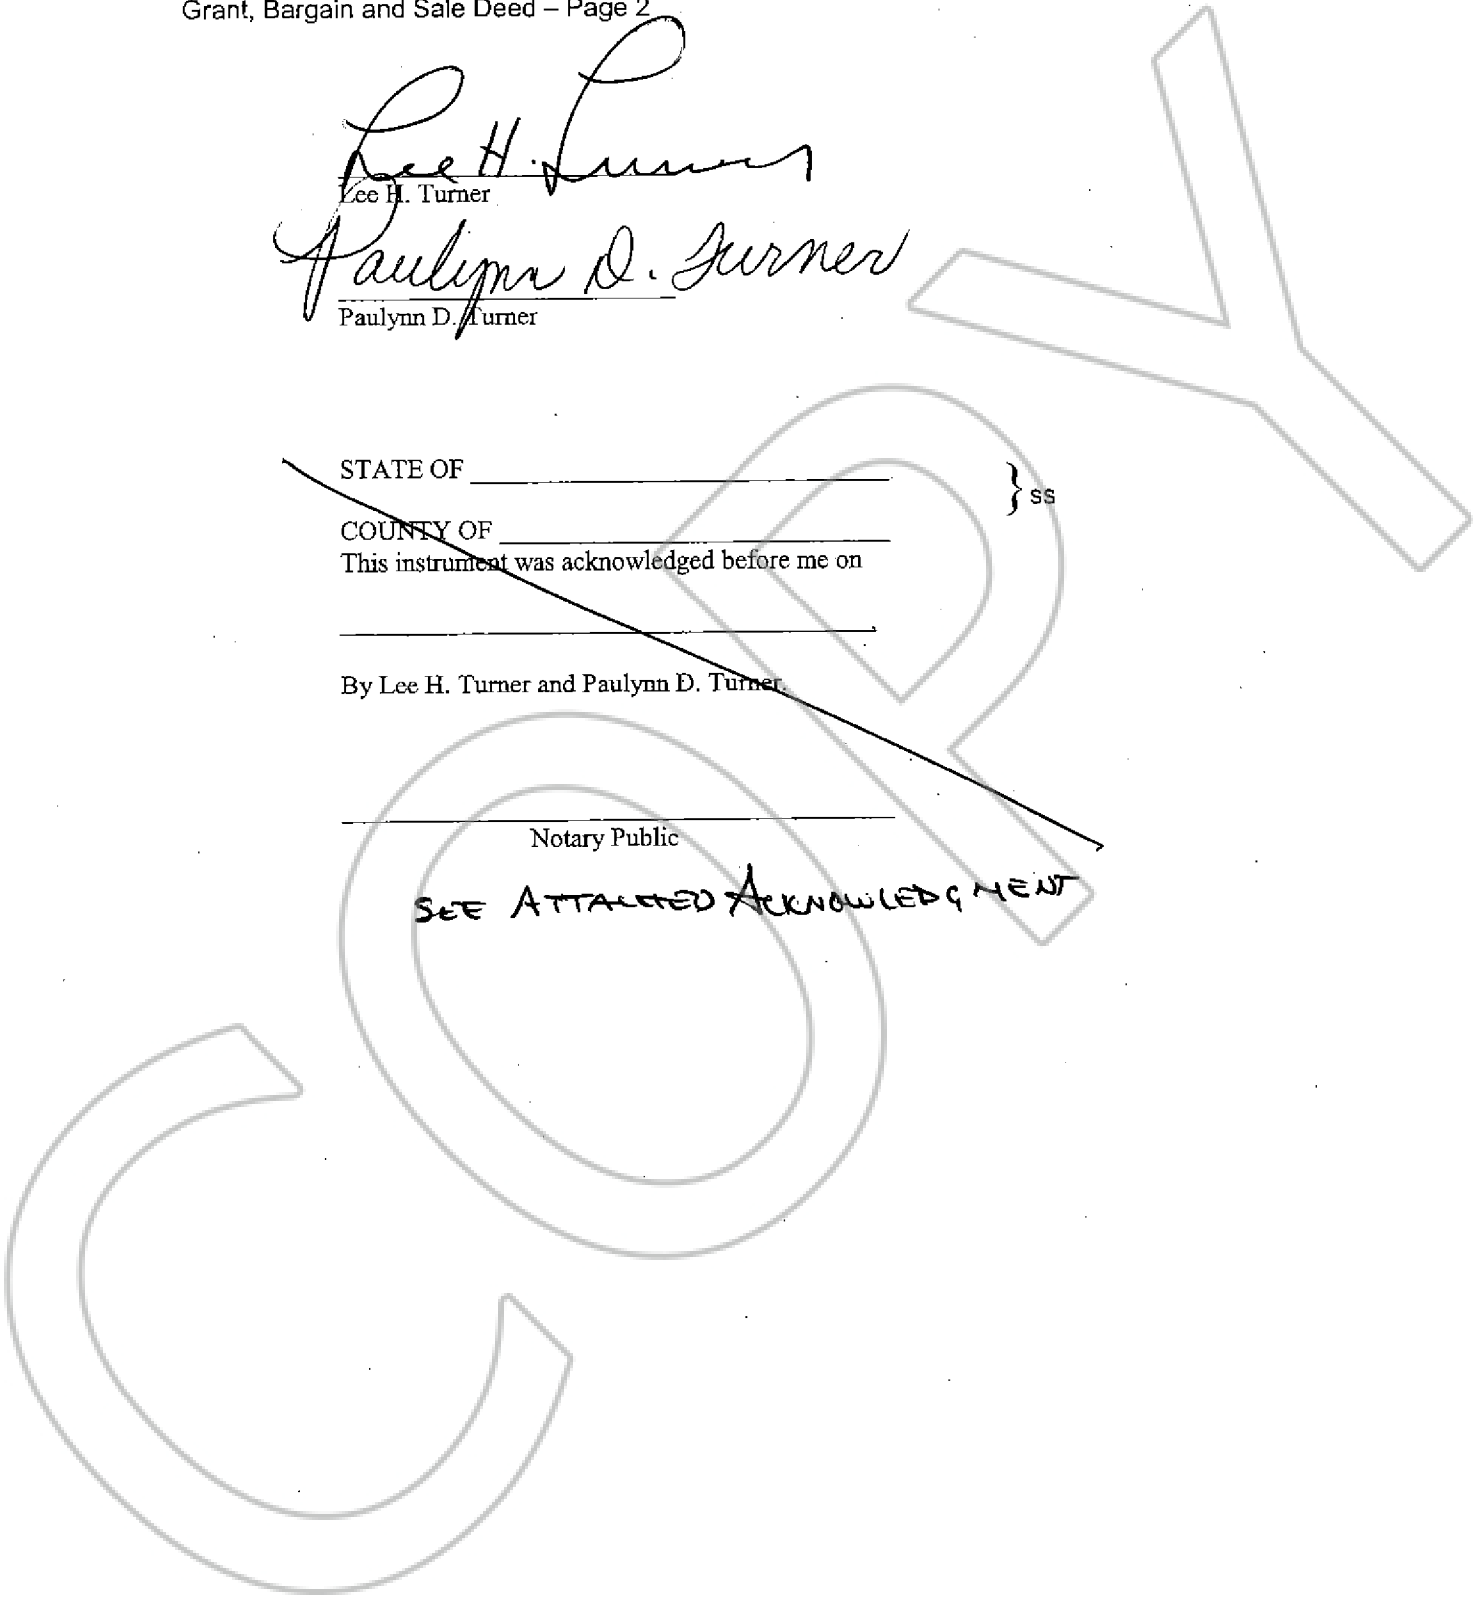 Grant, Bargain and Sale Deed – Page 2
Lee H. Turner
Lee H. Turner
Paulynn D. Turner
Paulynn D. Turner
STATE OF
} ss
COUNTY OF
This instrument was acknowledged before me on
By Lee H. Turner and Paulynn D. Turner.
Notary Public
SEE ATTACHED ACKNOWLEDGMENT
COPY